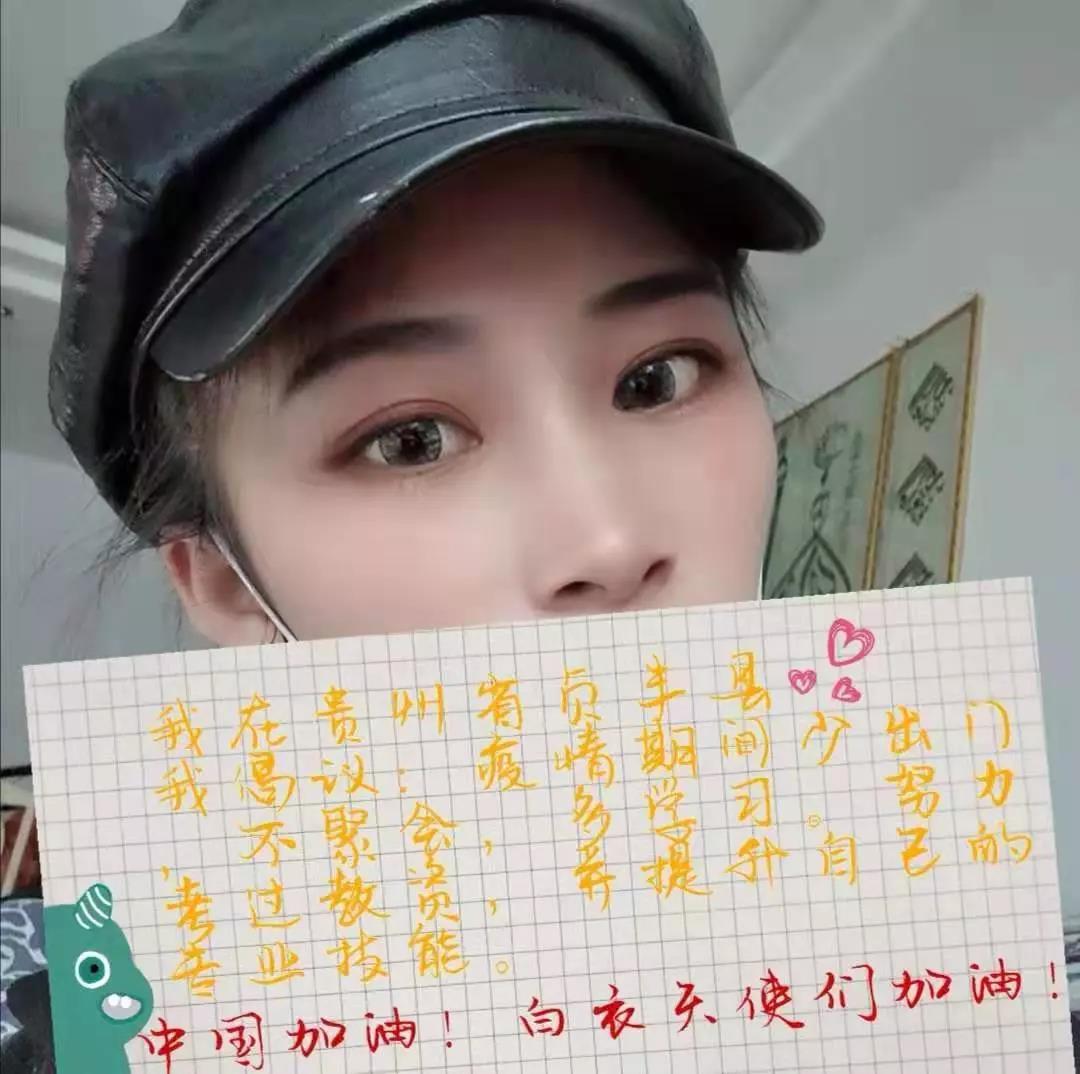 我在贵州省贞丰县
我倡议:疫情期间少出门
,不聚会,多学习。努力
考过教资,并提升自己的
专业技能。
中国加油!白衣天使们加油!